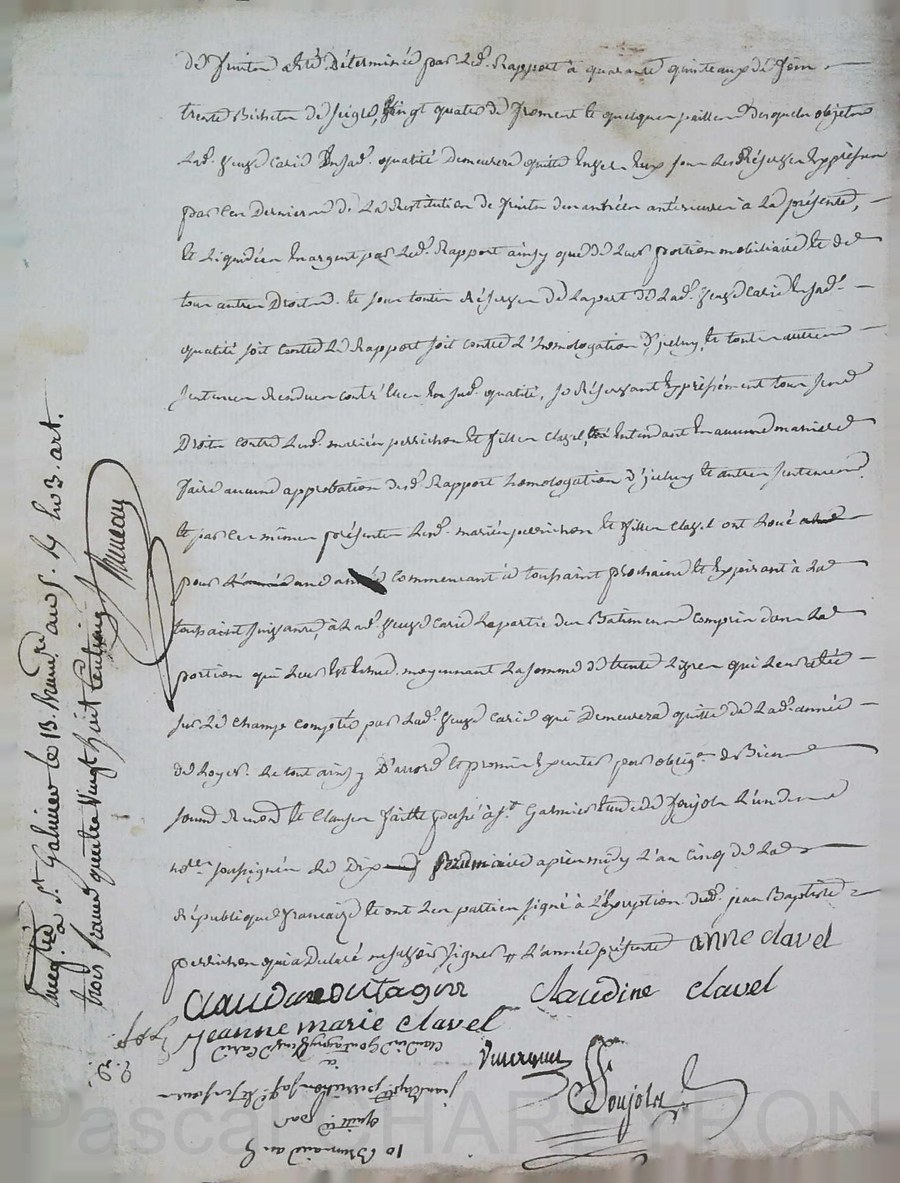 de fruits a été Déterminée par led. Rapport à quarante quinteaux de foin
trente Bichets de Seigle, vingt quatre de froment et quelques pailles desquels objets
lad. veuve Carie en sad. qualité demeurera quitte envers eux sous les Réserves expresses
par ces derniers de la Restitution de fruits des années antérieures à la présente,
et liquidées en argent par led. Rapport ainsy que de leur portion mobiliaire et de
tous autres Droits. et sous toutes réserves de la part de lad. veuve Carie en sad.
qualité soit contre le Rapport soit contre l'homologation d'jceluy et toutes autres
sentences rendues contr'elle en sad. qualité, se réservant expressément tous ses
Droits contre lesd. mariés perrichon et filles clavel, n'entendant en aucune maniere
faire aucune approbation dud. Rapport homologation d'jceluy et autres sentences.
et par ces mêmes présentes lesd. mariés perrichon et filles clavel ont loué
pour une année commencant à toussaint prochaine et expirant à la
toussaint suivante, à lad. veuve Carie la partie des Batimens compris dans la
portion qui leur est échue moyennant la somme de trente livres qui leur a été
sur le champ comptée par lad. veuve Carie qui demeurera quitte de lad. année
de loyer. le tout ainsy D'accord et promis exécuter pour oblig.on de Biens
soumis. renon. et Clauses faitte passé à St. Galmier étude de Soujols l'un des
no.res soussignés le Dix Brumaire après midy l'an cinq de la
république française et ont les parties signé à l'exception dud. jean Baptiste
perrichon qui a déclaré ne savoir signer l'année présente anne clavel
claudine clavel
Jeanne marie clavel
Soujols
Enreg.tré à St. Galmier le 13. Brum.re an 5.
trois francs quatre vingt huit centimes
10 Brumaire an 5
quittée par
jean Bapt. perrichon
à
Claudine veuve Carie
Pascal CHAREYRON